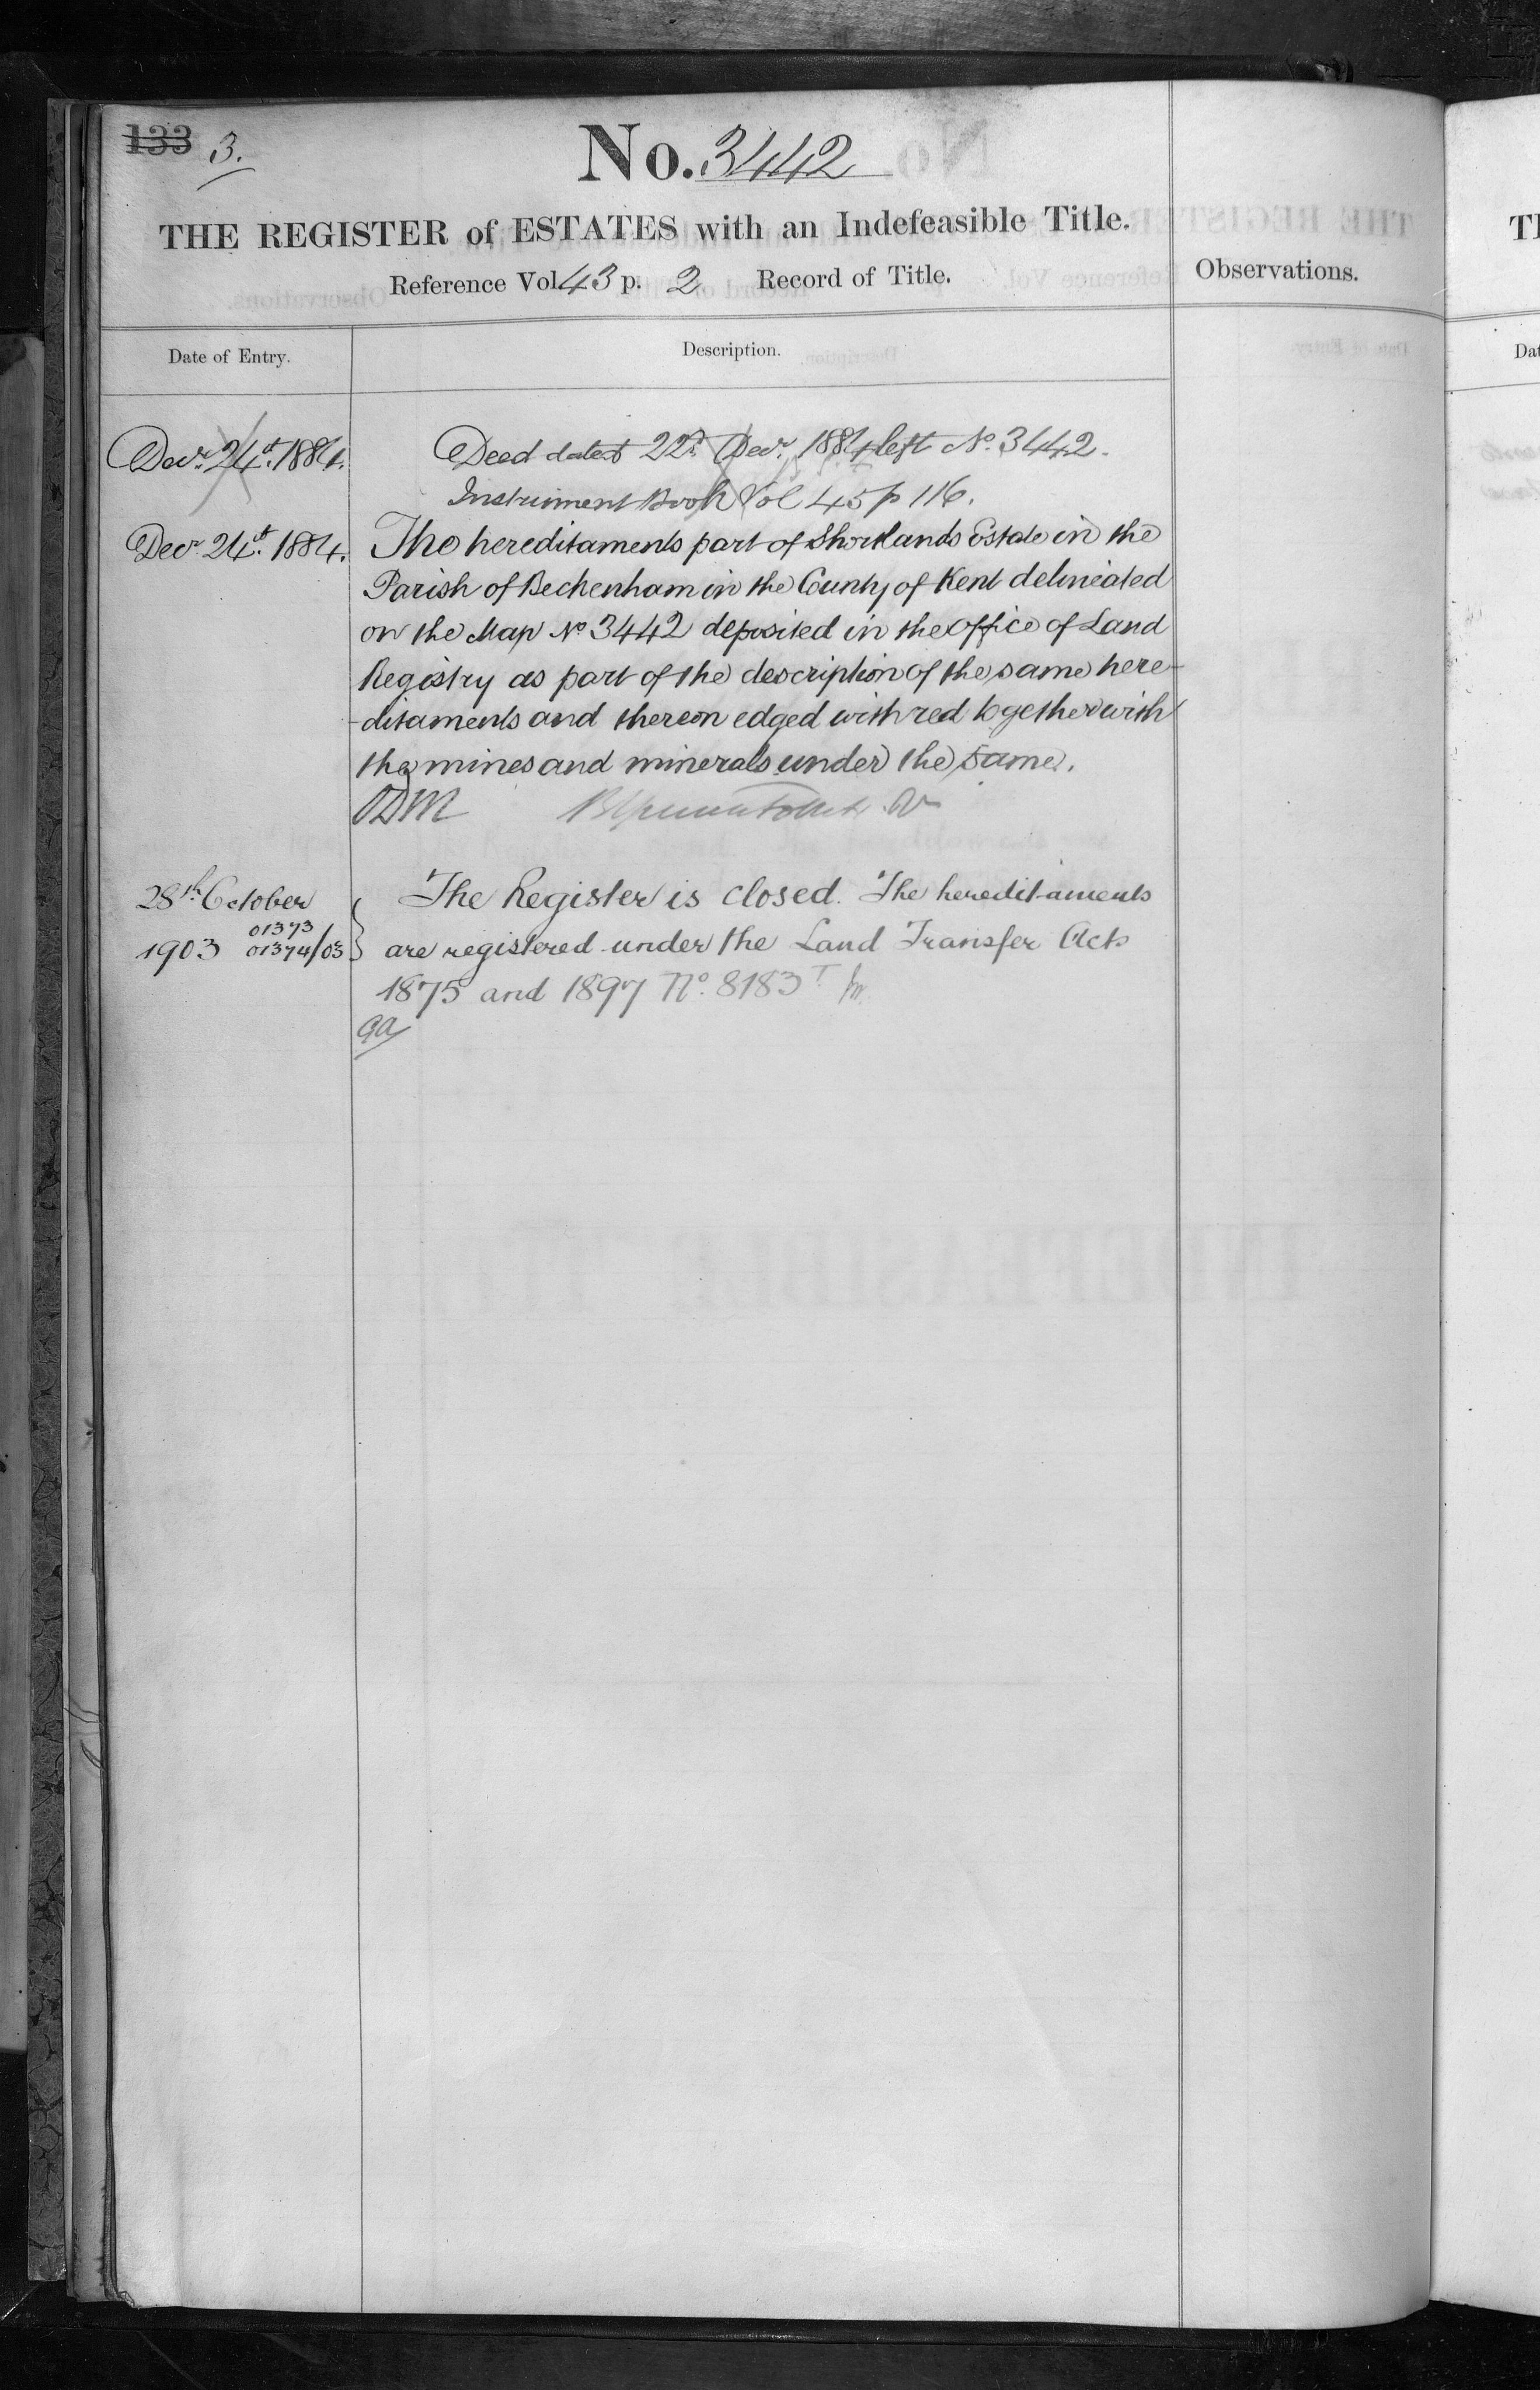 133 3.
No. 3442
THE REGISTER of ESTATES with an Indefeasible Title.
Reference Vol. 43 p. 2 Record of Title.
Observations.
Date of Entry.
Description.
Decr. 24th. 1884.
Deed dated 22d. Decr. 1884 left No. 3442.
Instrument Book Vol 45 p 116.
Decr. 24th. 1884.
The hereditaments part of Shortlands Estate in the
Parish of Beckenham in the County of Kent delineated
on the Map No 3442 deposited in the Office of Land
Registry as part of the description of the same here-
-ditaments and thereon edged with red together with
the mines and minerals under the same.
28th October
01373
1903 01374/03
The Register is closed. The hereditaments
are registered under the Land Transfer Acts
1875 and 1897 No. 8183